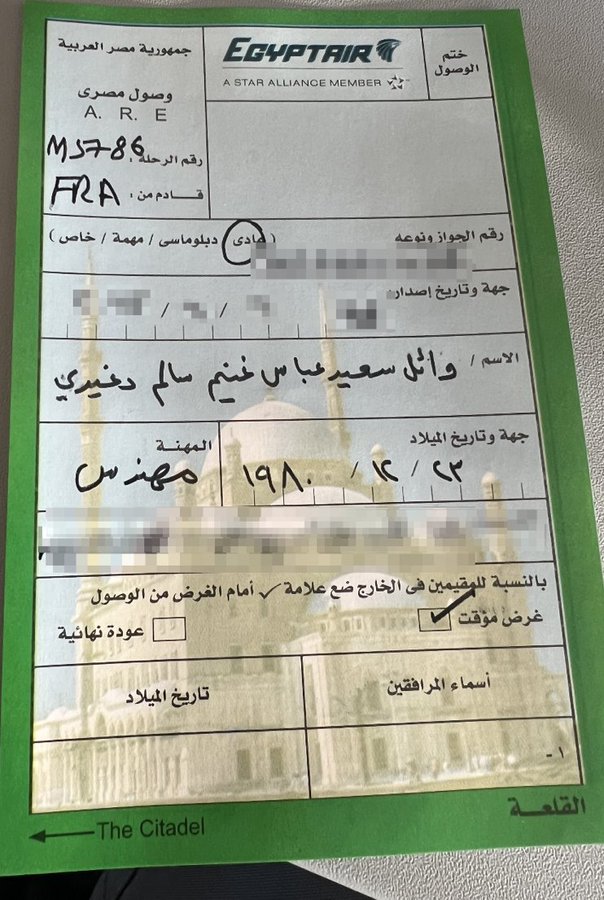 جمهورية مصر العربية
وصول مصرى
A. R. E
رقم الرحلة : MS786
قادم من : FRA
EGYPTAIR
A STAR ALLIANCE MEMBER
ختم الوصول
رقم الجواز ونوعه ( عادى / دبلوماسى / مهمة / خاص )
جهة وتاريخ إصداره
/ /
الاسم / وائل سعيد عباس غنيم سالم دغيدي
جهة وتاريخ الميلاد
٢٣ / ١٢ / ١٩٨٠
المهنة
مهندس
بالنسبة للمقيمين فى الخارج ضع علامة ✓ أمام الغرض من الوصول
غرض مؤقت ✓
عودة نهائية
أسماء المرافقين
تاريخ الميلاد
١ -
القلعة
The Citadel